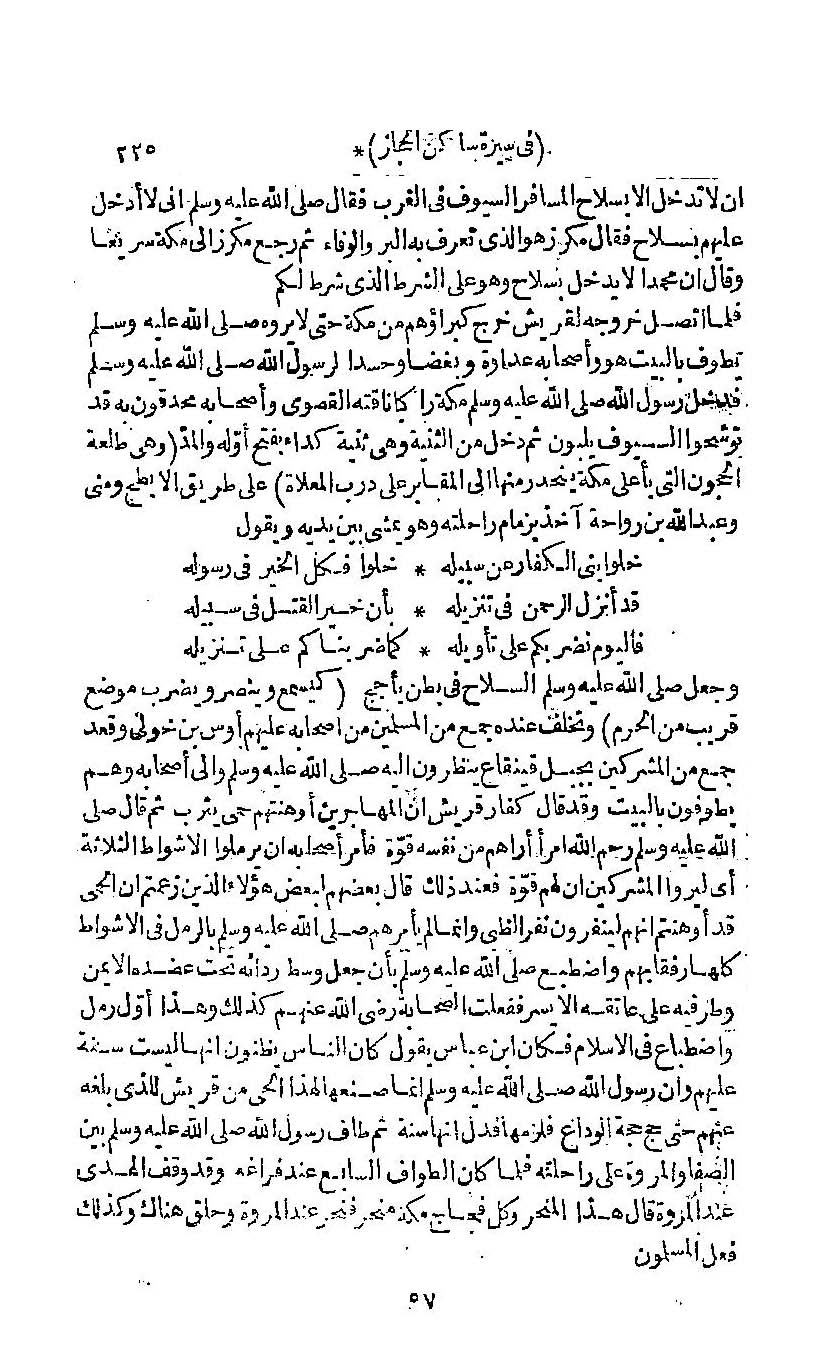 (فى سيرة ساكن الحجاز)* ٢٢٥
ان لا تدخل الا بسلاح المسافر السيوف فى القرب فقال صلى الله عليه وسلم انى لا أدخل
عليهم بسلاح فقال مكرز هو الذى تعرف به البر والوفاء ثم رجع مكرز الى مكة سريعا
وقال ان محمدا لا يدخل بسلاح وهو على الشرط الذى شرط لكم
فلما اتصل خروجه لقريش خرج كبراؤهم من مكة حتى لا يروه صلى الله عليه وسلم
يطوف بالبيت هو وأصحابه عداوة وبغضا وحسدا لرسول الله صلى الله عليه وسلم
فدخل رسول الله صلى الله عليه وسلم مكة راكبا ناقته القصوى وأصحابه محدقون به قد
توشحوا السيوف يلبون ثم دخل من الثنية وهى ثنية كداء بفتح أوله والمد (وهى طلعة
الحجون التى بأعلى مكة ينحدر منها الى المقابر على درب المعلاة) على طريق الابطح ومنى
وعبد الله بن رواحة آخذ بزمام راحلته وهو يمشى بين يديه ويقول
خلوا بنى الكفار عن سبيله * خلوا فكل الخير فى رسوله
قد أنزل الرحمن فى تنزيله * بأن خير القتل فى سبيله
فاليوم نضربكم على تأويله * كما ضربناكم على تنزيله
وجعل صلى الله عليه وسلم السلاح فى بطن يأجج (كيسمع وينصر ويضرب موضع
قريب من الحرم) وتخلف عنده جمع من المسلمين من اصحابه عليهم أوس بن خولى وقعد
جمع من المشركين بجبل قينقاع ينظرون اليه صلى الله عليه وسلم والى أصحابه وهم
يطوفون بالبيت وقد قال كفار قريش ان المهاجرين أوهنتهم حمى يثرب ثم قال صلى
الله عليه وسلم رحم الله امرأ أراهم من نفسه قوّة فأمر أصحابه ان يرملوا الاشواط الثلاثة
أى ليروا المشركين ان لهم قوّة فعند ذلك قال بعضهم لبعض هؤلاء الذين زعمتم ان الحمى
قد أوهنتهم انهم لينفرون نفر الظبى وانما لم يأمرهم صلى الله عليه وسلم بالرمل فى الاشواط
كلها رفقا بهم واضطبع صلى الله عليه وسلم بأن جعل وسط ردائه تحت عضده الايمن
وطرفيه على عاتقه الايسر ففعلت الصحابة رضى الله عنهم كذلك وهذا أوّل رمل
واضطباع فى الاسلام فكان ابن عباس يقول كان الناس يظنون انها ليست سنة
عليهم وان رسول الله صلى الله عليه وسلم انما صنعها لهذا الحى من قريش للذى بلغه
عنهم حتى حج حجة الوداع فلزمها فدل انها سنة ثم طاف رسول الله صلى الله عليه وسلم بين
الصفا والمروة على راحلته فلما كان الطواف السابع عند فراغه وقد وقف الهدى
عند المروة قال هذا المنحر وكل فجاج مكة منحر فنحر عند المروة وحلق هناك وكذلك
فعل المسلمون
٥٧